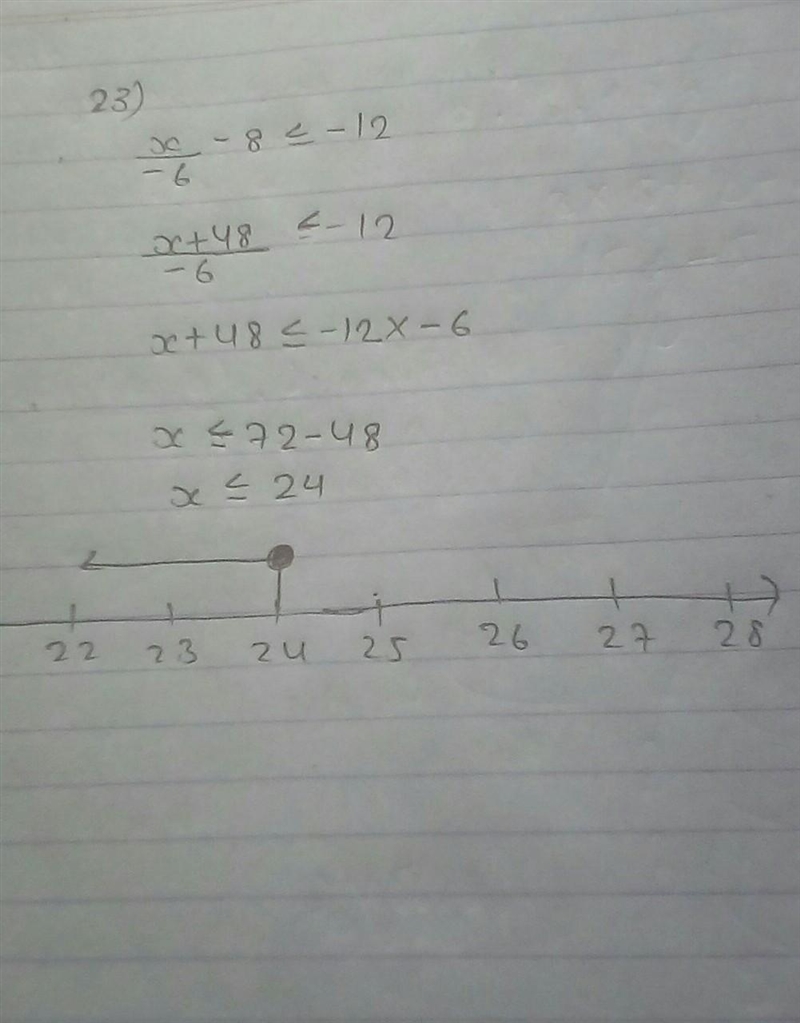 23)
x/-6 - 8 ≤ -12
x+48/-6 ≤ -12
x+48 ≤ -12x-6
x ≤ 72-48
x ≤ 24
22 23 24 25 26 27 28